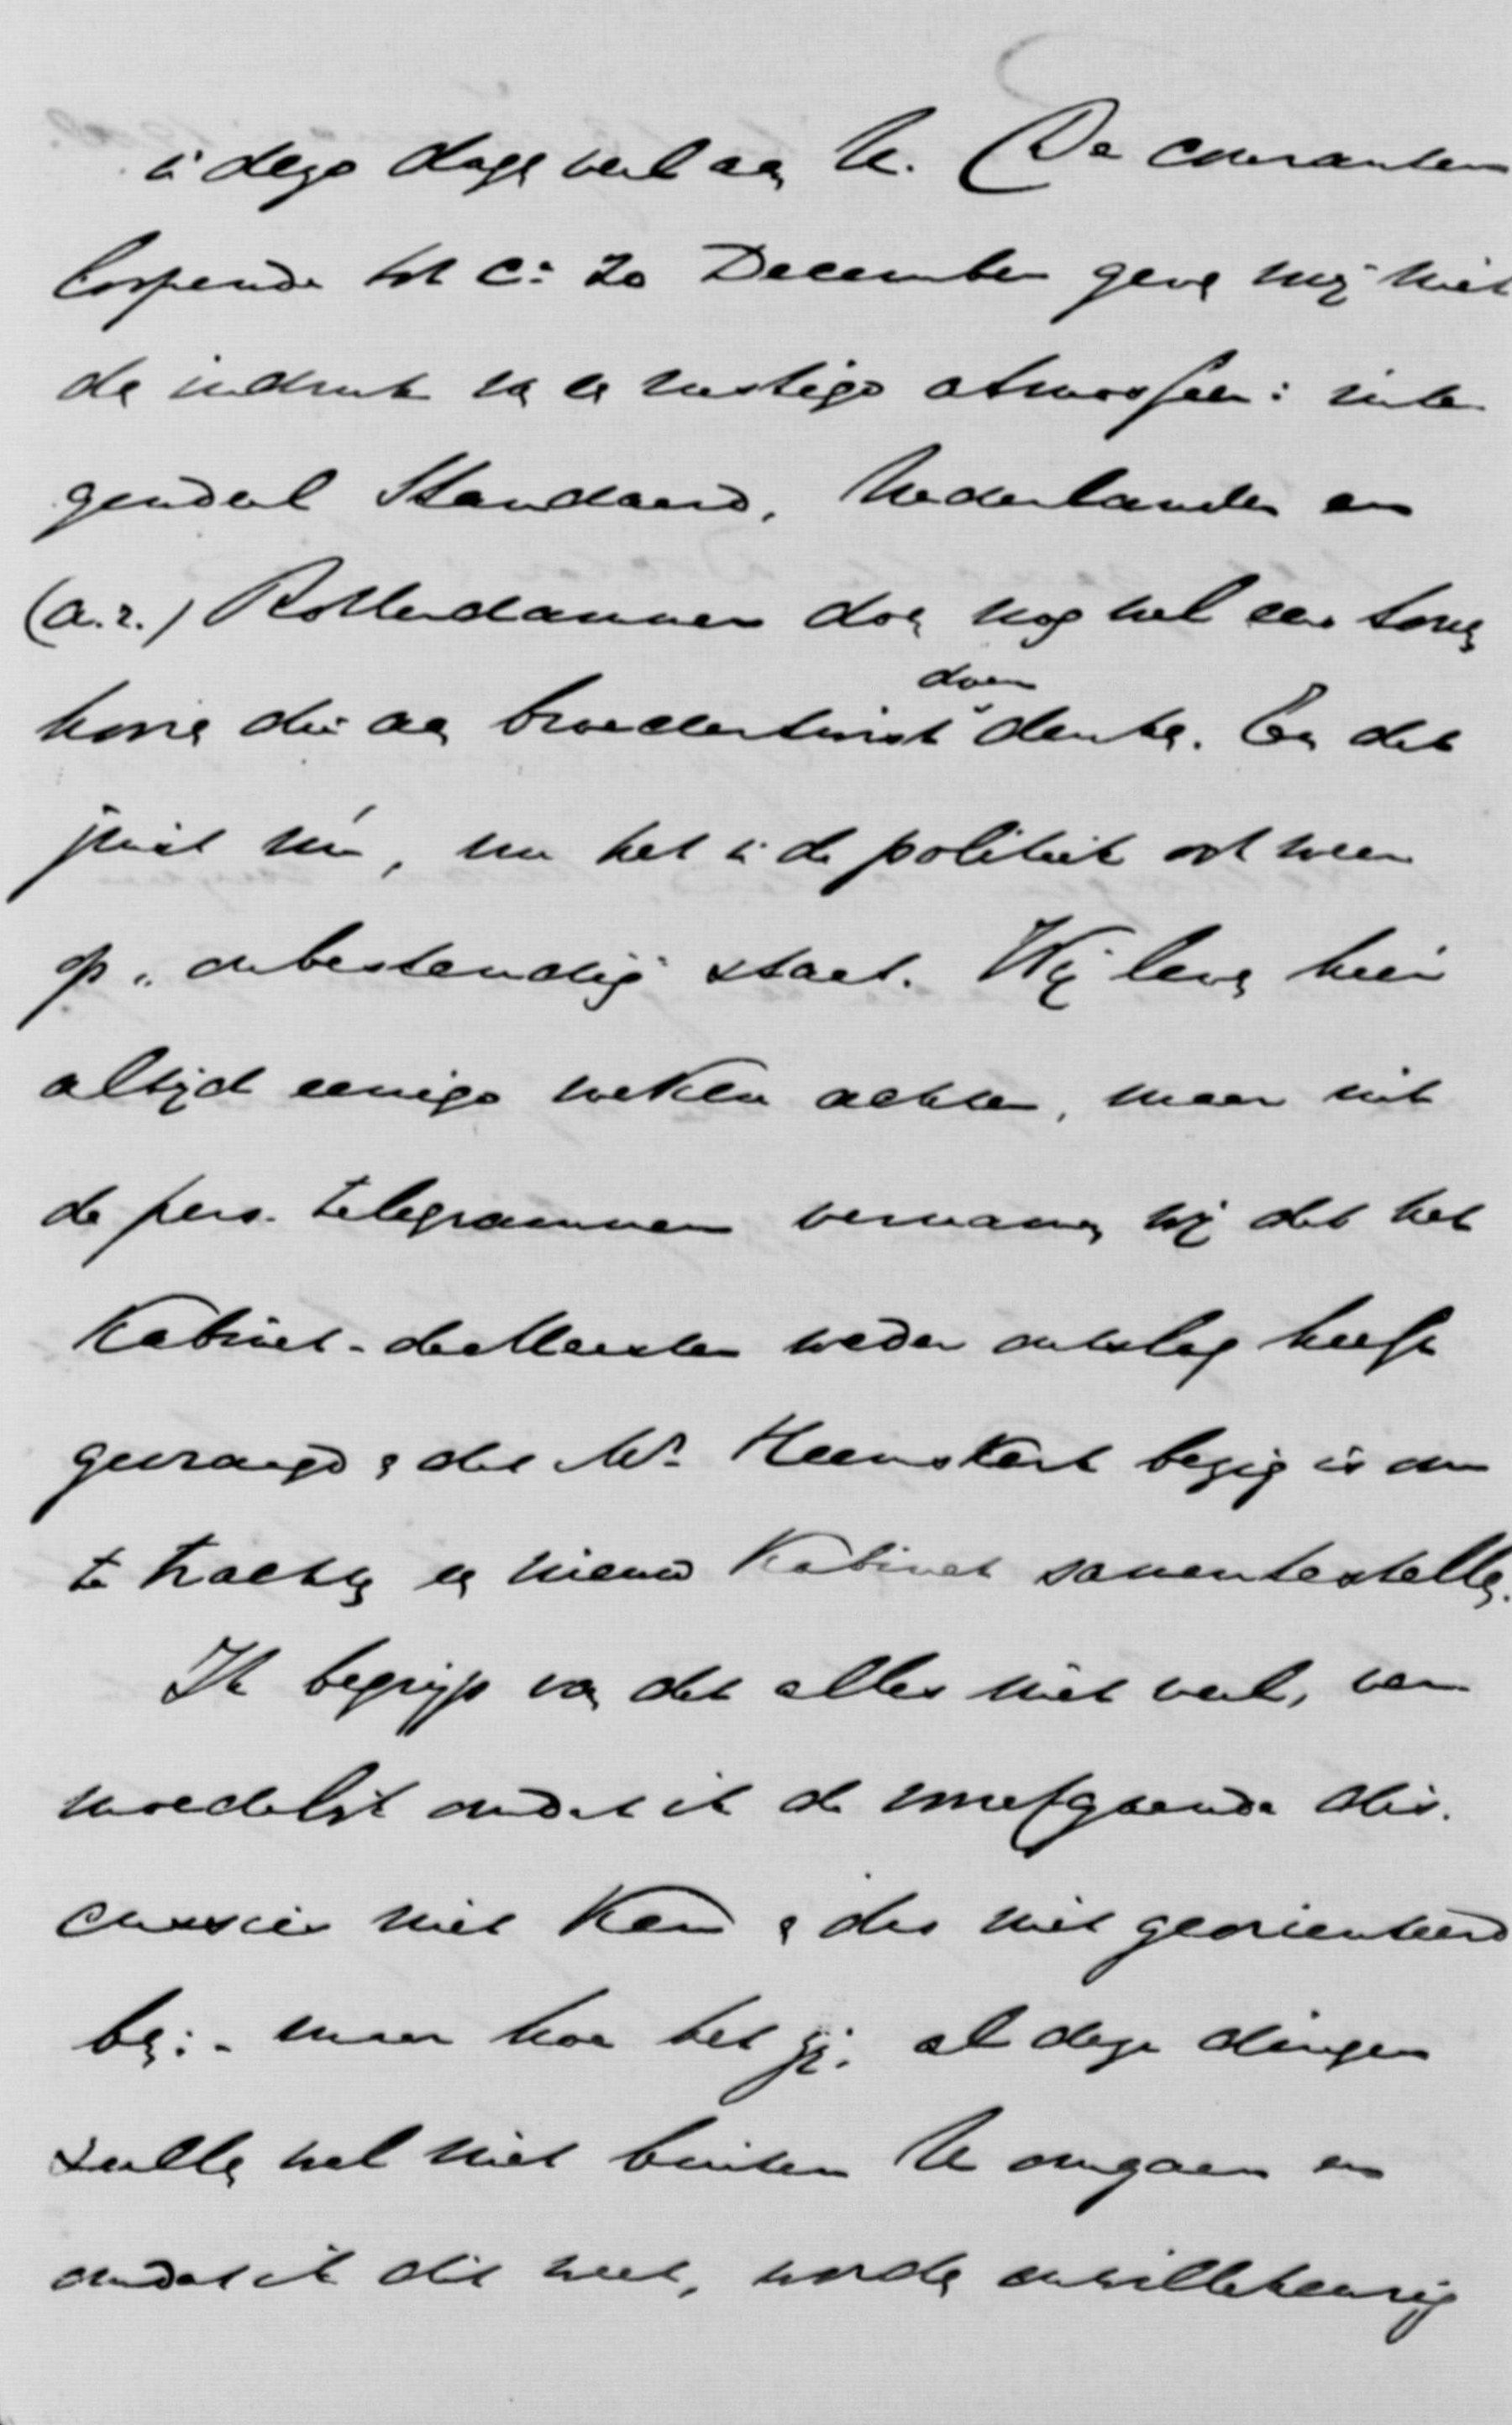 in deze dagen veel aan U. De couranten
loopende tot ca 20 December geven mij niet
de indruk van een rustige atmosfeer: inte
gendeel Standaard, Nederlander en
(a.r.) Rotterdammer doen nog wel eens tonen
hooren die aan broedertwist doen denken. En dat
juist nú, nu het in de politiek ook weer
op „onbestendig" staat. Wij leven hier
altijd eenige weken achter, maar uit
de pers-telegrammen vernamen wij dat het
Kabinet-de Meester weder ontslag heeft
gevraagd en dat Mr. Heemskerk bezig is om
te trachten een nieuw Kabinet samentestellen.
Ik begrijp van dat alles niet veel, ver
moedelijk omdat ik de voorafgaande dis-
cussies niet ken en dus niet georienteerd
ben: - maar hoe het zij: al deze dingen
zullen wel niet buiten U omgaan en
omdat ik dit weet, worden onwillekeurig